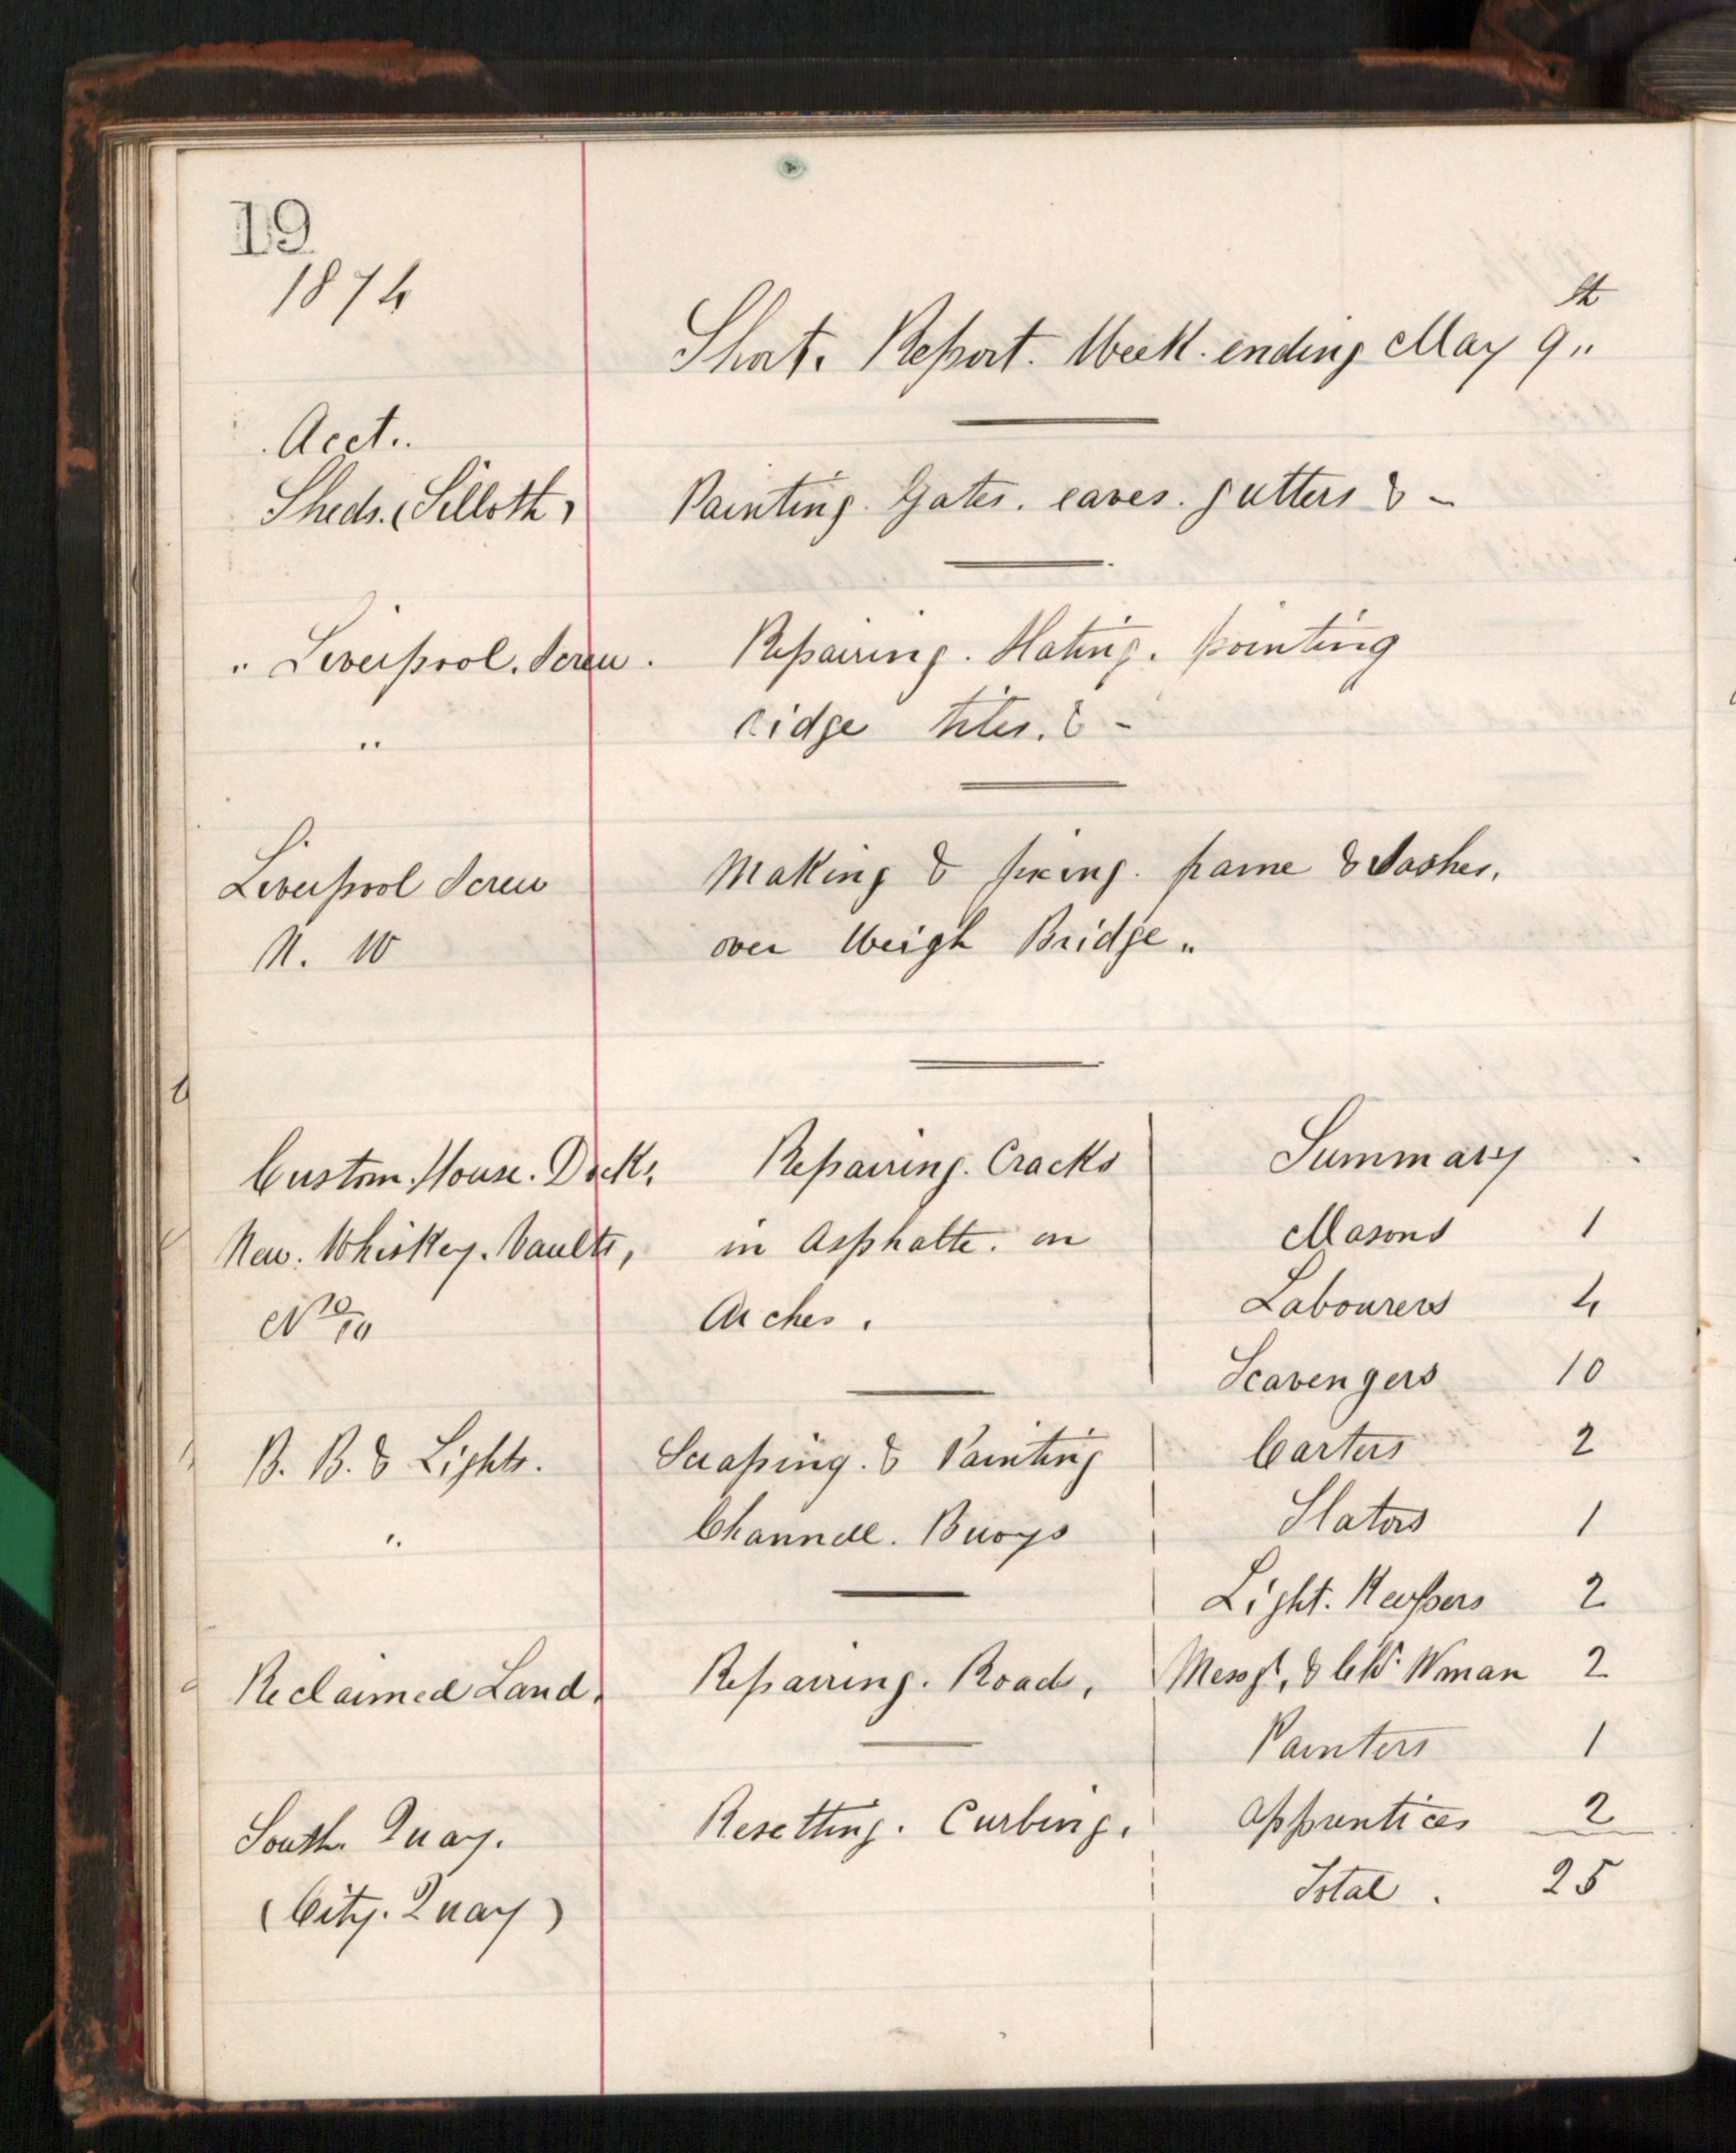 19
1874
Short. Report. Week. ending May 9th
Acct..
Sheds. (Silloth, Painting. Gates. eaves. gutters & -
" Liverpool. Screw. Repairing. Slating. pointing
" ridge tiles. & -
Liverpool Screw Making & fixing. frame & Sashes,
N. W over Weigh Bridge "
Custom. House. Docks, Repairing. Cracks
New. Whiskey. Vaults, in Asphalte. on
No 10 Arches.
B. B. & Lights. Scraping. & Painting
" Channell. Buoys
Reclaimed Land. Repairing. Roads,
South. Quay. Resetting. Curbing.
(City. Quay)
Summary
Masons 1
Labourers 4
Scavengers 10
Carters 2
Slators 1
Light. Keepers 2
Messgr, & Woman 2
Painters 1
Apprentices 2
Total. 25